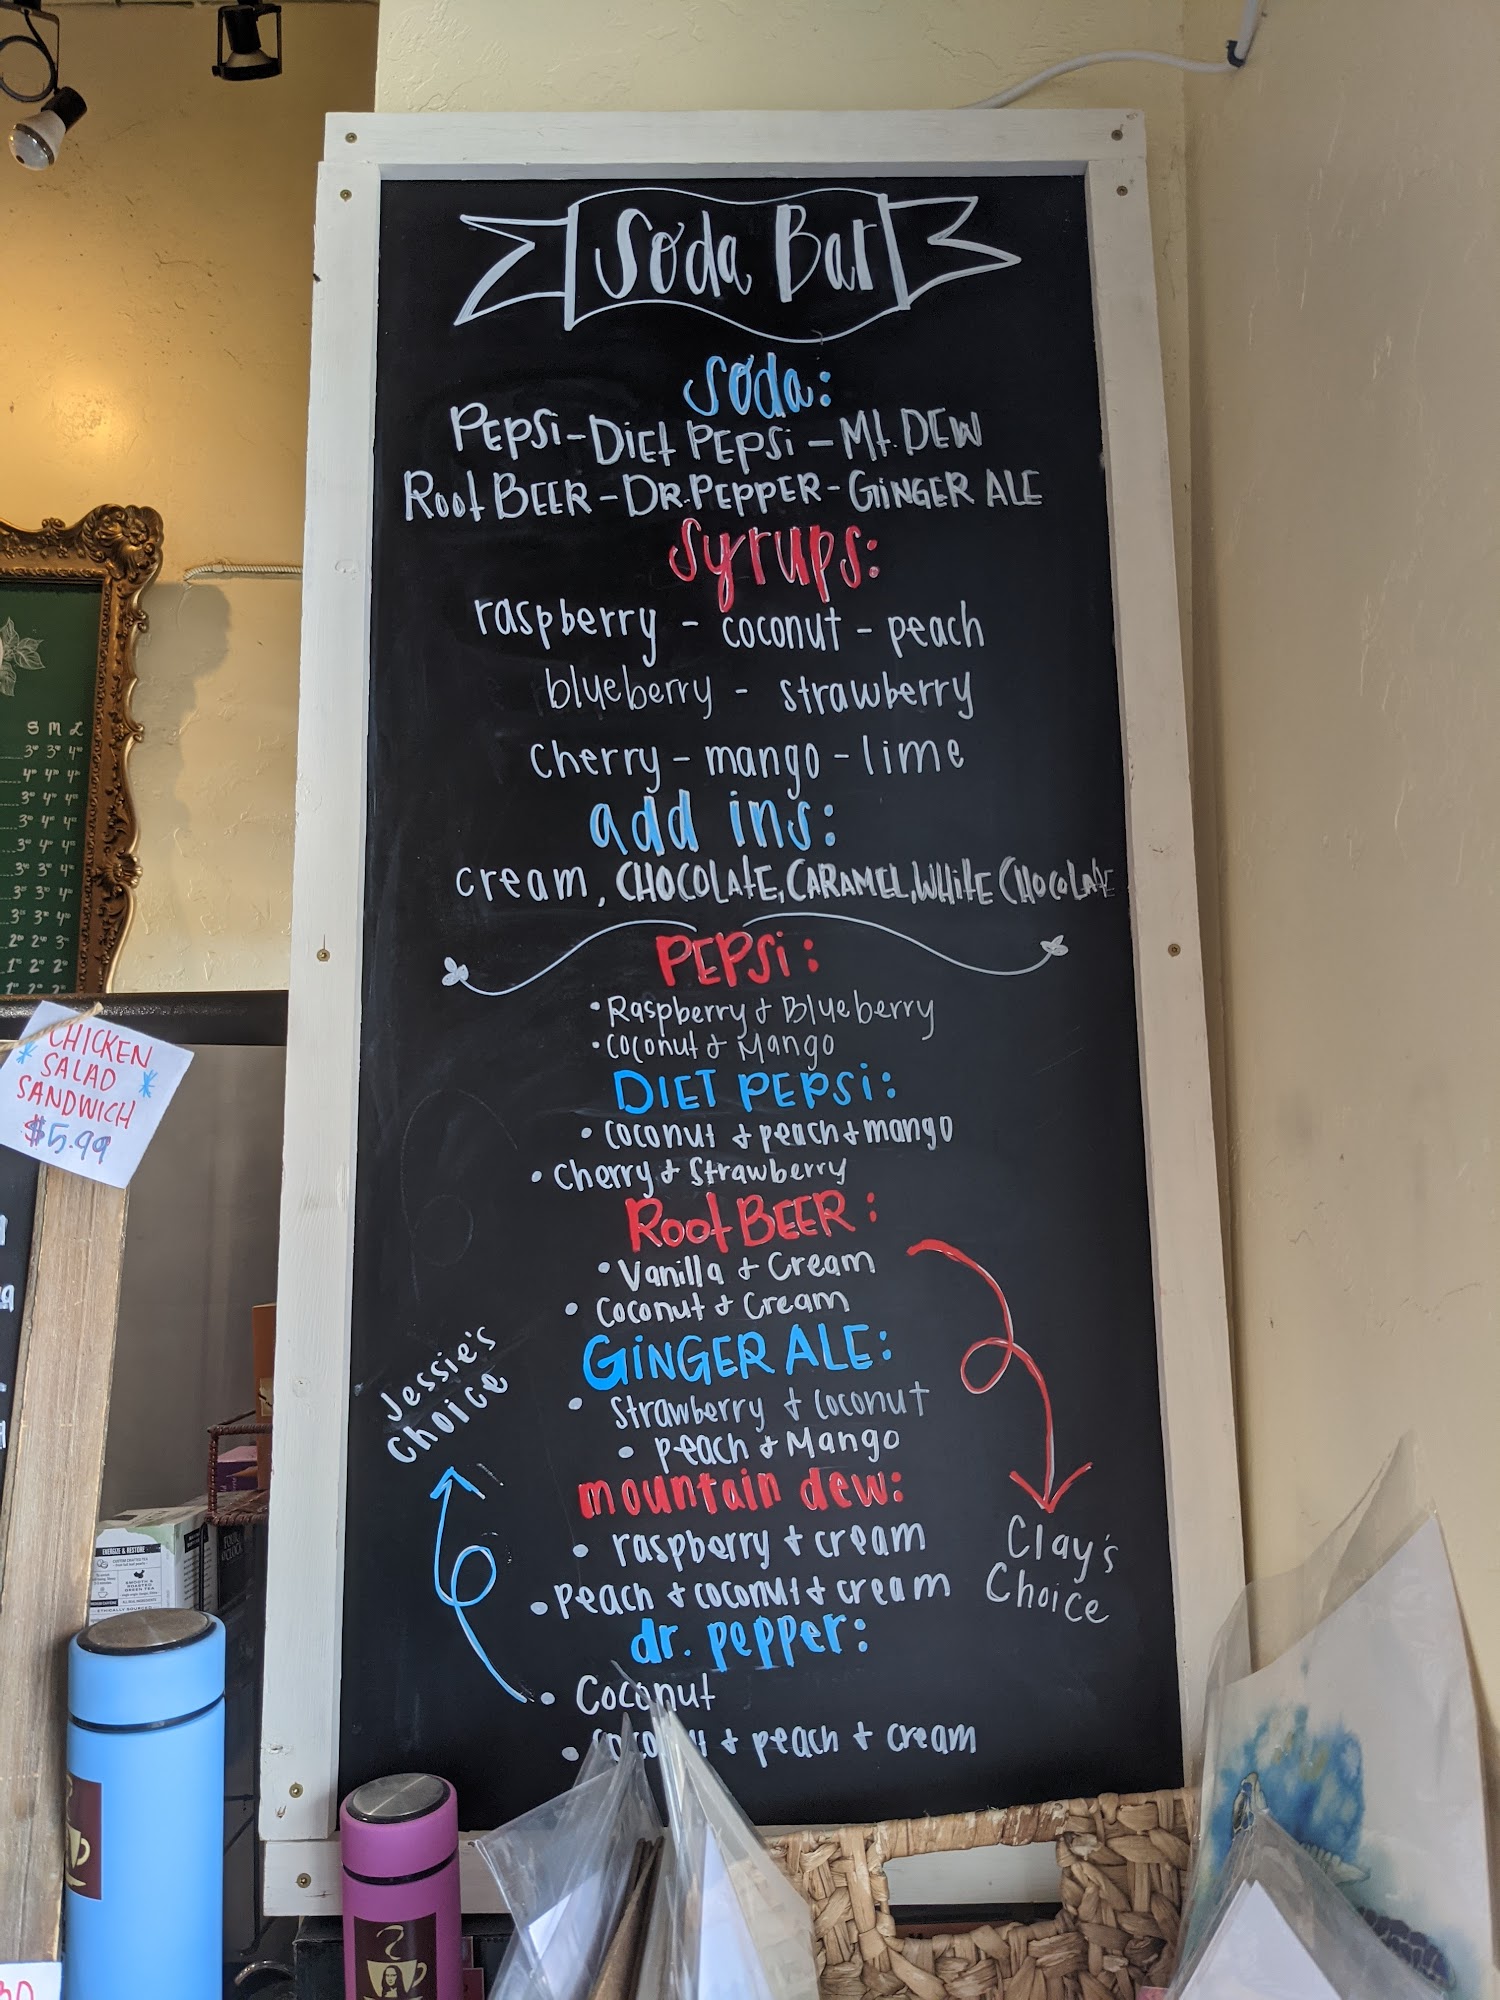 Soda Bar
Soda:
PEPSi - DiEt PEPSi - Mt. DEW
Root BEER - DR. PEPPER - GiNGER ALE
Syrups:
raspberry - coconut - peach
blueberry - strawberry
cherry - mango - lime
add ins:
cream, CHOCOLAtE, CARAMEL, WHitE CHOCOLAtE
PEPSi:
• Raspberry & Blueberry
• Coconut & Mango
DIET PEPSi:
• Coconut & peach & mango
• Cherry & Strawberry
Root BEER:
• Vanilla & Cream
• Coconut & Cream
GiNGER ALE:
• Strawberry & Coconut
• Peach & Mango
mountain dew:
• raspberry & cream
• Peach & coconut & cream
dr. pepper:
• Coconut
• coconut & peach & cream
Jessie's
Choice
Clay's
Choice
CHICKEN
SALAD
SANDWICH
$5.99
S M L
ENERGIZE & RESTORE